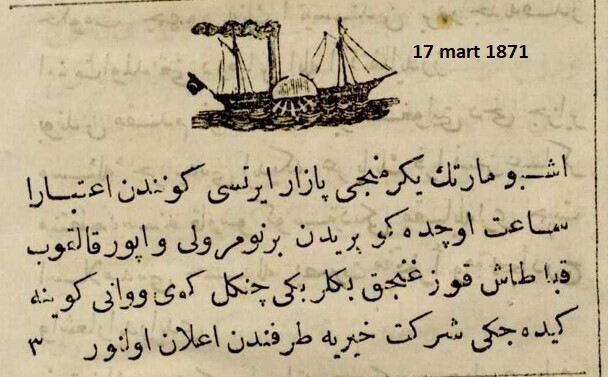 17 mart 1871
اشبو مارتك يكرمنجى پازار ايرتسى كوندن اعتبارا
ساعت اوچده كوپريدن برنومرولى واپور قالقوب
قباطاش قوزغنجق بكلربكى چنكل كوى ووانى كوينه
كيده جكى شركت خيريه طرفندن اعلان اولنور ٣